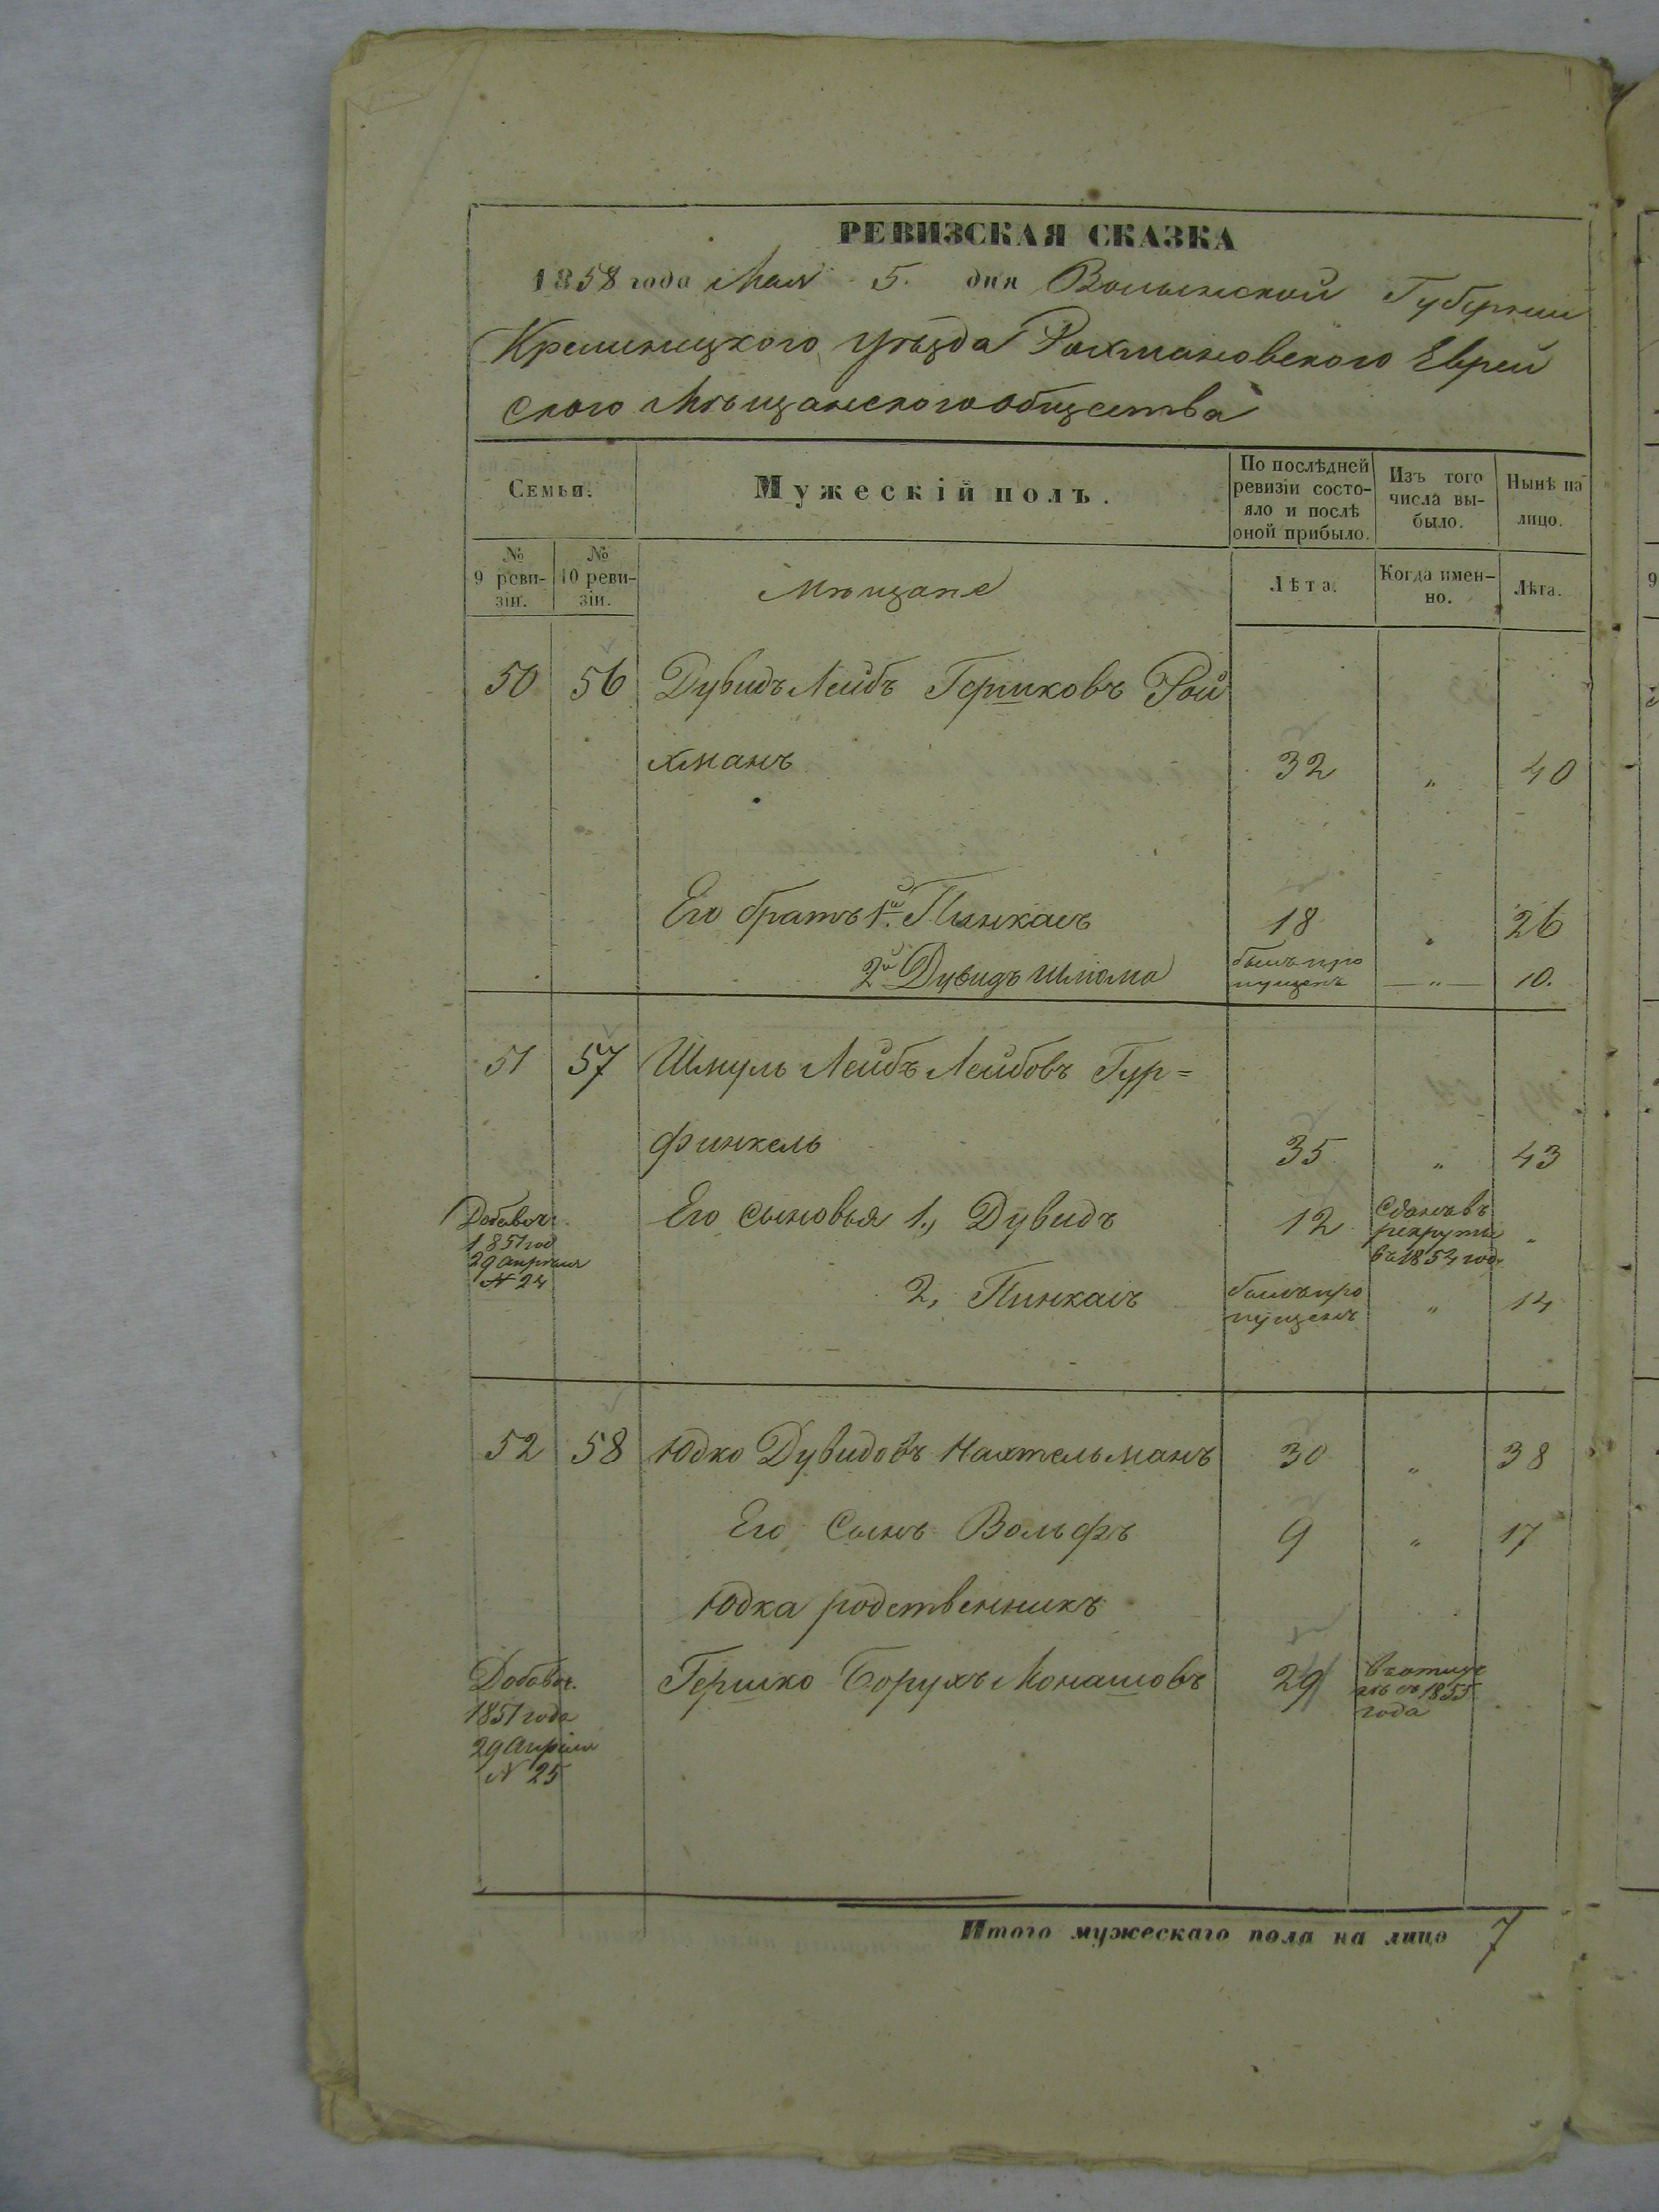 РЕВИЗСКАЯ СКАЗКА
1858 года Мая 5. дня Волынской Губернии
Кременецкого уѣзда Рахмановского Еврей
ского Мѣщанского общества
Семьи.
Мужескій полъ.
По послѣдней ревизіи состо-
яло и послѣ оной прибыло.
Изъ того числа вы-
было.
Нынѣ на лицо.
№ 9 реви-
зіи.
№ 10 реви-
зіи.
Мѣщане
Лѣта.
Когда имен-
но.
Лѣта.
50 56 Дувидъ Лейбъ Гершковъ Рой
хманъ 32 " 40
Его братъ 1й Пинкасъ 18 " 26
2й Дувидъ Шлома былъ про
пущенъ — " — 10.
51 57 Шмуль Лейбъ Лейбовъ Гур=
финкель 35 " 43
Добавоч.
1851 год
29 Апрѣля
№ 24
Его сыновья 1, Дувидъ 12 Сданъ въ
рекруты
въ 1854 год. "
2, Пинкасъ былъ про
пущенъ " 14
52 58 Юдко Дувидовъ Нахтельманъ 30 " 38
Его Сынъ Вольфъ 9 " 17
Юдка родственникъ
Добавоч.
1851 года
29 Апрѣля
№ 25
Гершко Борухъ Монашовъ 29
съ 1855
года
Итого мужескаго пола на лицо 7